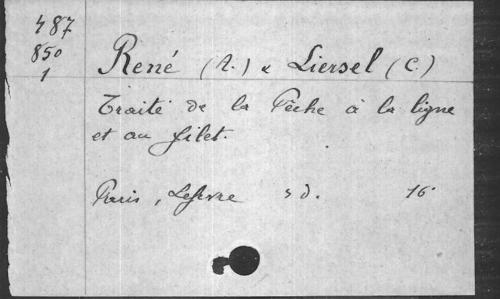 487
850
1
René (A.) & Liersel (C)
Traité de la Pêche à la ligne
et au filet.
Paris, Lefevre s d. 16°